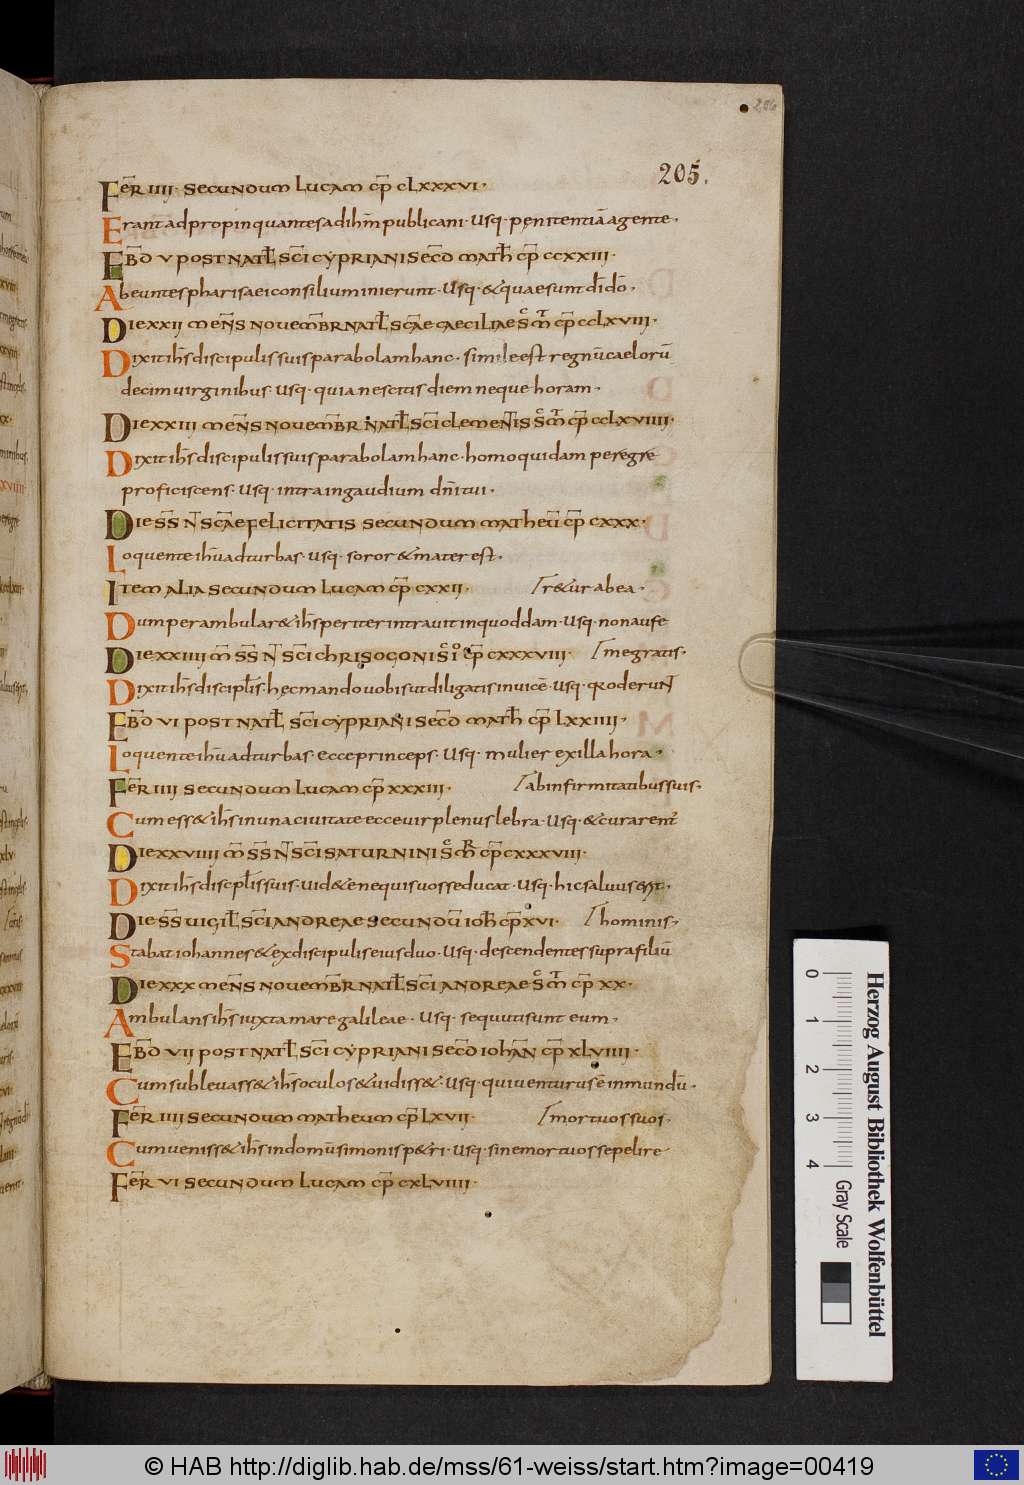 206
205.
FER̄ IIII · SECUNDUM LUCAM CP̄ CLXXXVI ·
Erant adpropinquantes ad ih̄m publicani · Usq · penitentiā agente ·
EBD̄ V POST NATL̄ SC̄I CYPRIANI SECD̄ MATH̄ CP̄ CCXXIII ·
Abeuntes pharisaei consilium inierunt · Usq · & quae sunt dī dō ·
DIE XXII MEN̄S NOUEM̄BR NATL̄ SC̄AE CAECILIAE S̄ M̄ CP̄ CCLXVIII ·
Dixit ih̄s discipulis suis parabolam hanc · simile est regnū caelorū
decim virginibus · Usq · quia nescitis diem neque horam ·
DIE XXIII MEN̄S NOUEM̄BR NATL̄ SC̄I CLEMEN̄TIS S̄ M̄ CP̄ CCLXVIIII ·
Dixit ih̄s discipulis suis parabolam hanc · homo quidam peregre
proficiscens · Usq · intra in gaudium dn̄i tui ·
DIE S̄S N̄ SC̄AE FELICITATIS SECUNDUM MATHEŪ CP̄ CXXX ·
Loquente ih̄u ad turbas · Usq · soror & mater est ·
ITEM ALIA SECUNDUM LUCAM CP̄ CXXII · r&ur abea ·
Dum perambular& ih̄s periter intrauit in quoddam · Usq · non aufe
DIE XXIIII M̄ S̄S N̄ SC̄I CHRISOGONI S̄ IŌ CP̄ CXXXVIII · me gratis ·
Dixit ih̄s discipl̄is · hec mando uobis ut diligatis inuicē · Usq · qr oderuN̄
EBD̄ VI POST NATL̄ SC̄I CYPRIANI SECD̄ MATH̄ CP̄ LXXIIII ·
Loquente ih̄u ad turbas · ecce princeps · Usq · mulier ex illa hora ·
FER̄ IIII SECUNDUM LUCAM CP̄ XXXIII · ab infirmitatibus suis ·
Cum ess& ih̄s in una ciuitate ecce uir plenus lebra · Usq · & curarent̄
DIE XXVIIII M̄ S̄S N̄ SC̄I SATURNINI S̄ M̄R CP̄ CXXXVIII ·
Dixit ih̄s discpl̄is suis · uid&e nequis uos seducat · Usq · hic saluus est ·
DIE S̄S UIGIL̄ SC̄I ANDREAE SECUNDŪ IOH̄ CP̄ XVI · hominis ·
Stabat iohannes & ex discipulis eius duo · Usq · descendentes supra filiū
DIE XXX MEN̄S NOUEM̄BR NATL̄ SC̄I ANDREAE S̄ M̄ CP̄ XX ·
Ambulans ih̄s iuxta mare galileae · Usq · sequuti sunt eum ·
EBD̄ VII POST NATL̄ SC̄I CYPRIANI SECD̄ IOHAN̄ CP̄ XLVIIII ·
Cum subleuass& ih̄s oculos & uidiss& · Usq · qui uenturus ē in mundū ·
FER̄ IIII SECUNDUM MATHEUM CP̄ LXVII · mortuos suos ·
Cum ueniss& ih̄s in domū simonis p&ri · Usq · sine mortuos sepelire
FER̄ VI SECUNDUM LUCAM CP̄ CXLVIIII ·
Herzog August Bibliothek Wolfenbüttel
0 1 2 3 4 Gray Scale
© HAB http://diglib.hab.de/mss/61-weiss/start.htm?image=00419